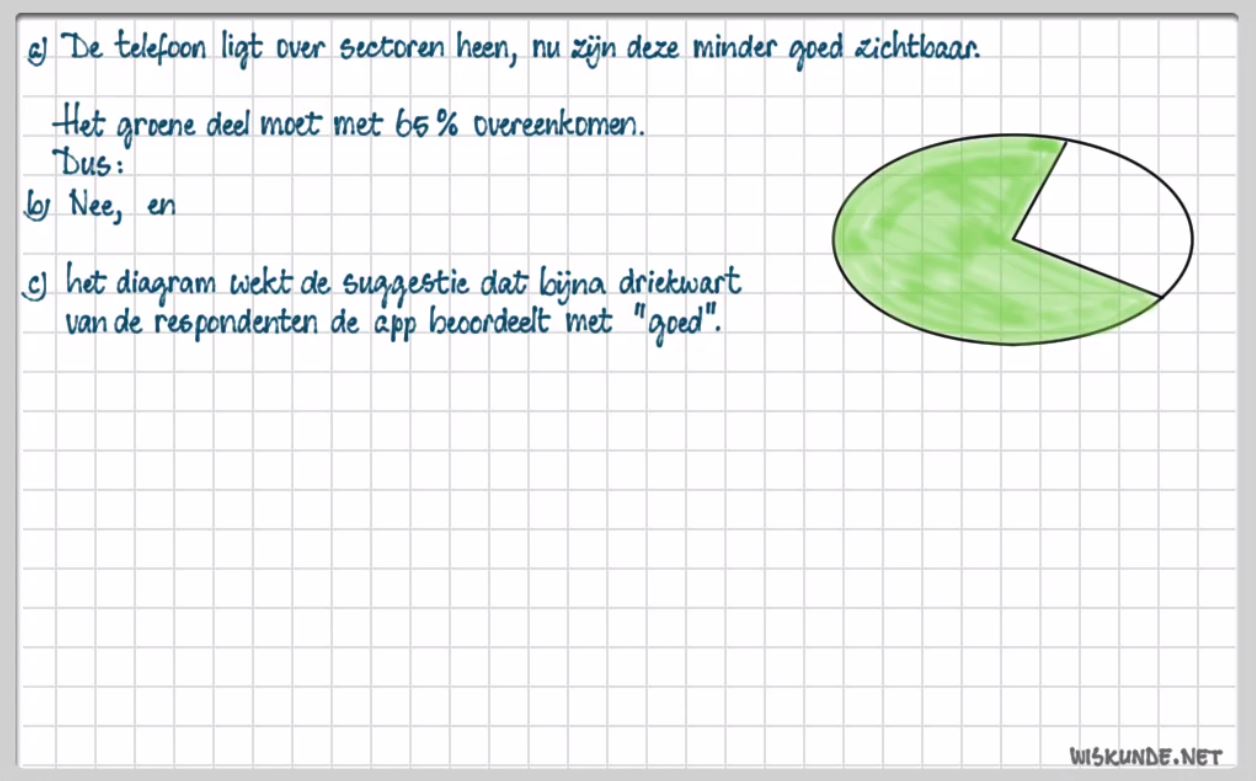 a) De telefoon ligt over sectoren heen, nu zijn deze minder goed zichtbaar.
Het groene deel moet met 65% overeenkomen.
Dus:
b) Nee, en
c) het diagram wekt de suggestie dat bijna driekwart
van de respondenten de app beoordeelt met "goed".
WISKUNDE.NET